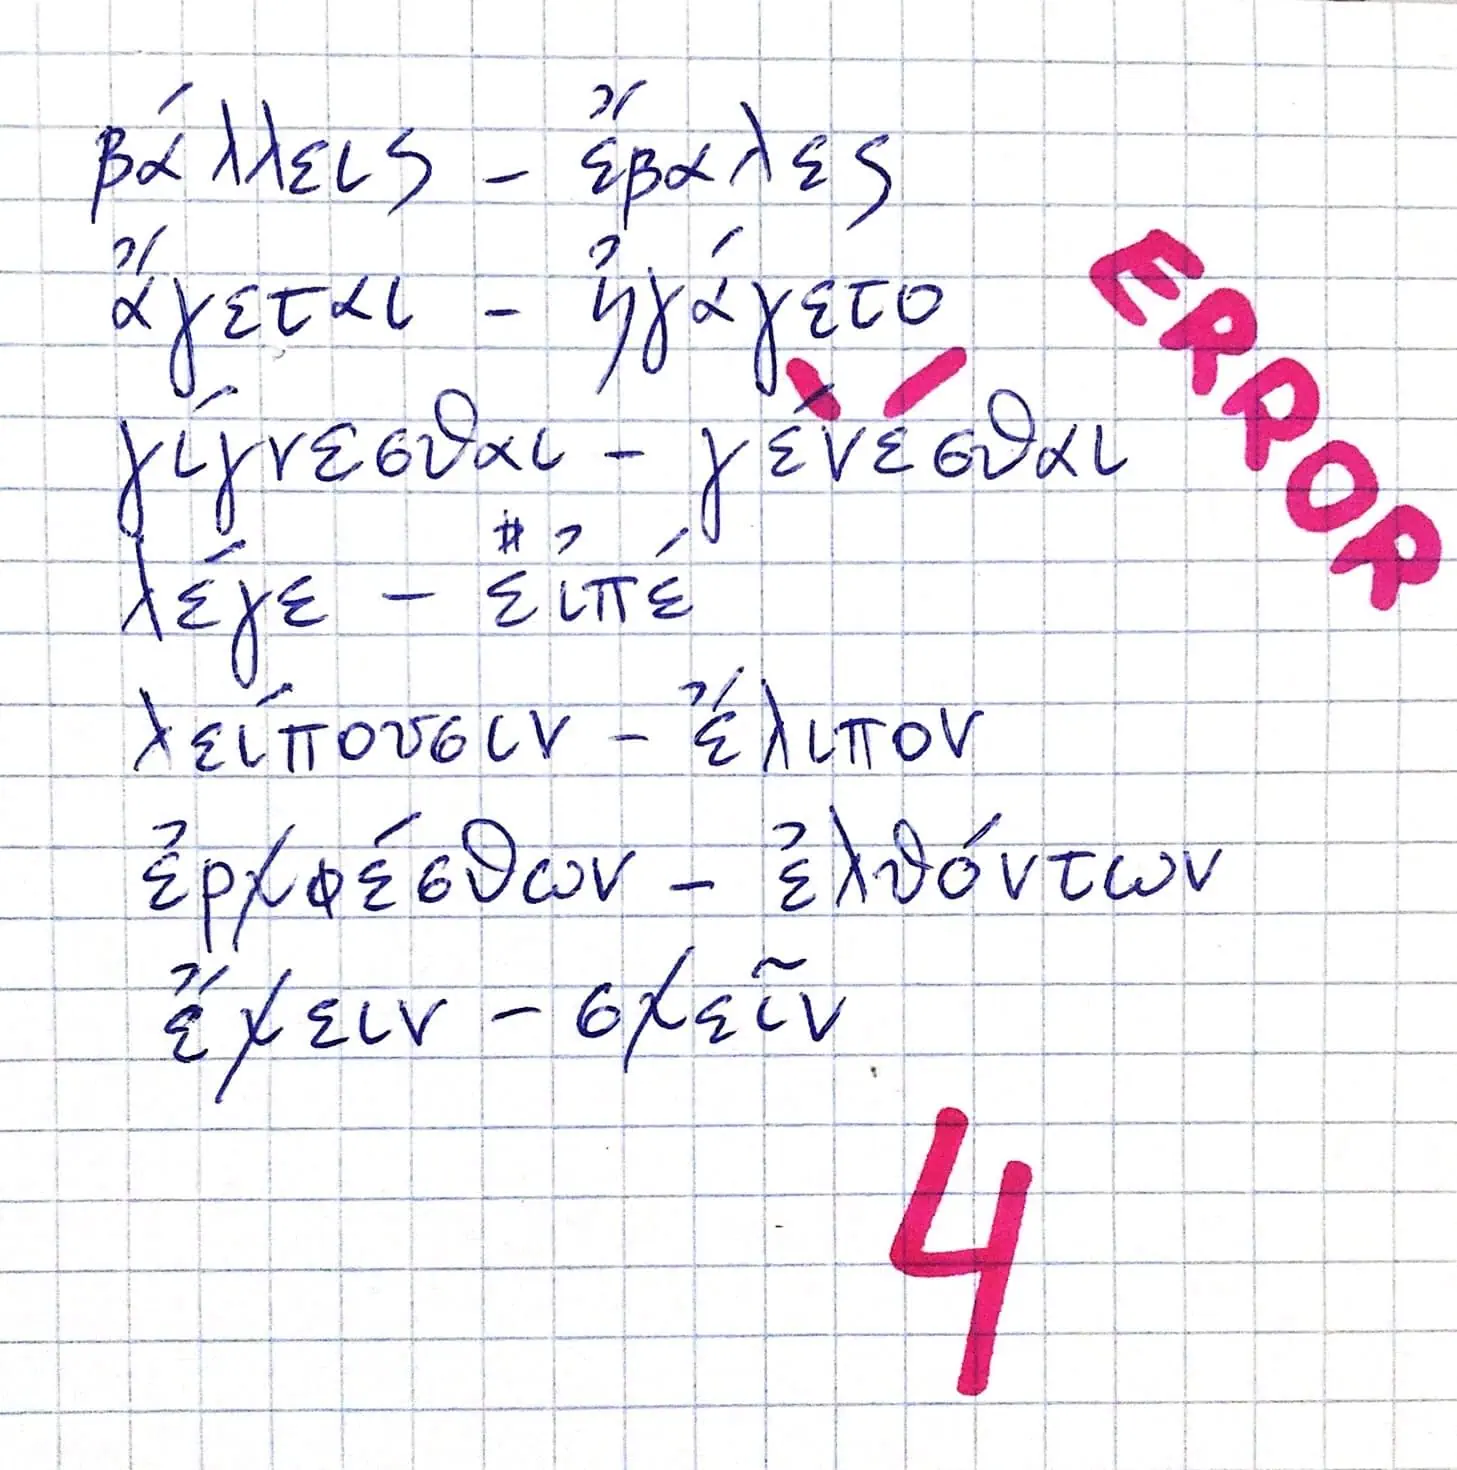 βάλλεις - ἔβαλες
ἄγεται - ἠγάγετο
γίγνεσθαι - γένεσθαι
ERROR
λέγε - εἰπέ
λείπουσιν - ἔλιπον
ἐρχφέσθων - ἐλθόντων
ἔχειν - σχεῖν
4